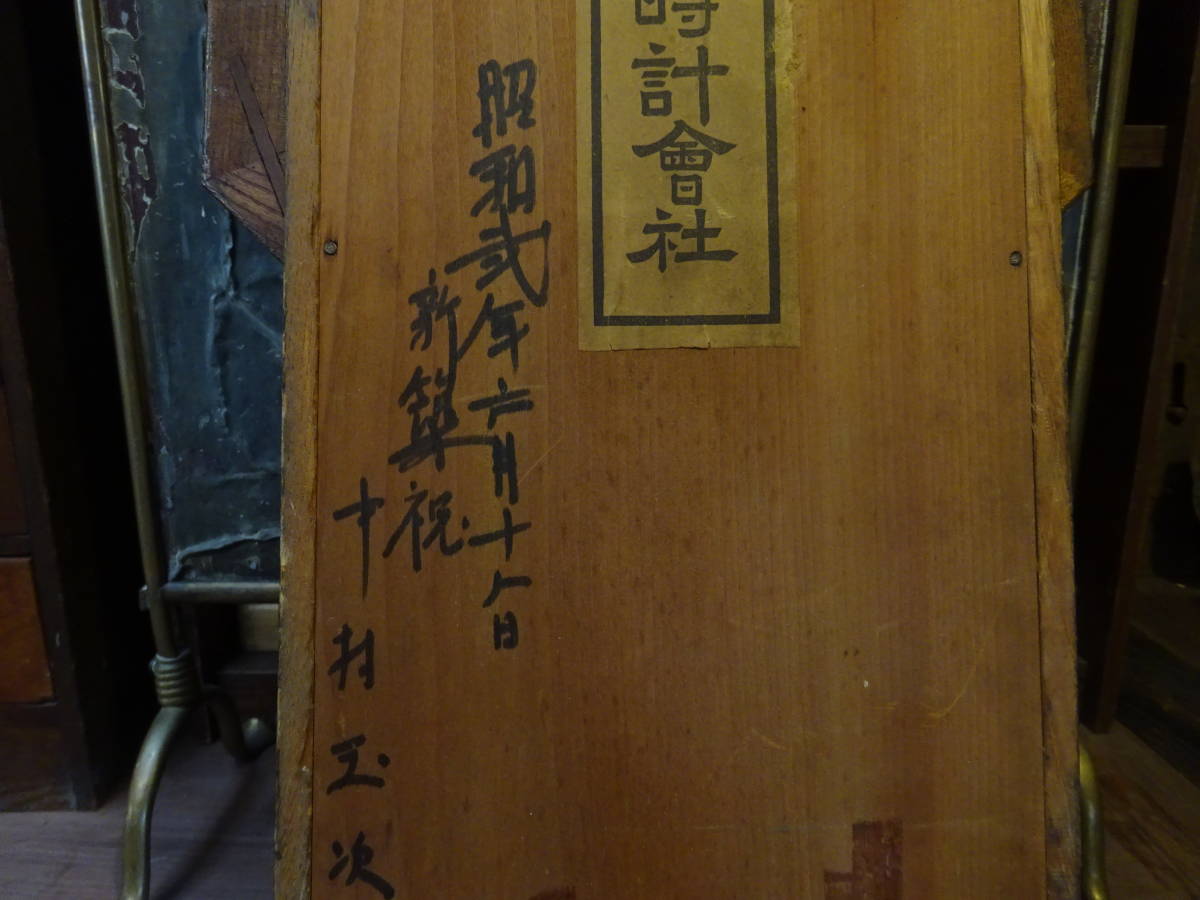 時計會社
昭和弐年六月十八日
新築祝
中村玉次